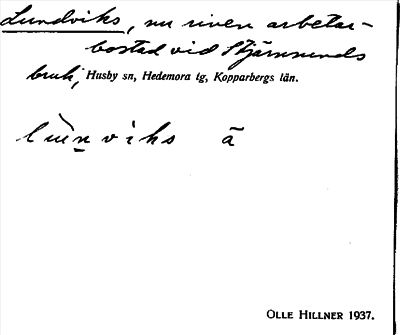 Lundviks, nu riven arbetar-
bostad vid Stjärnsunds
bruk, Husby sn, Hedemora tg, Kopparbergs län.
lùn̲viks ā
OLLE HILLNER 1937.